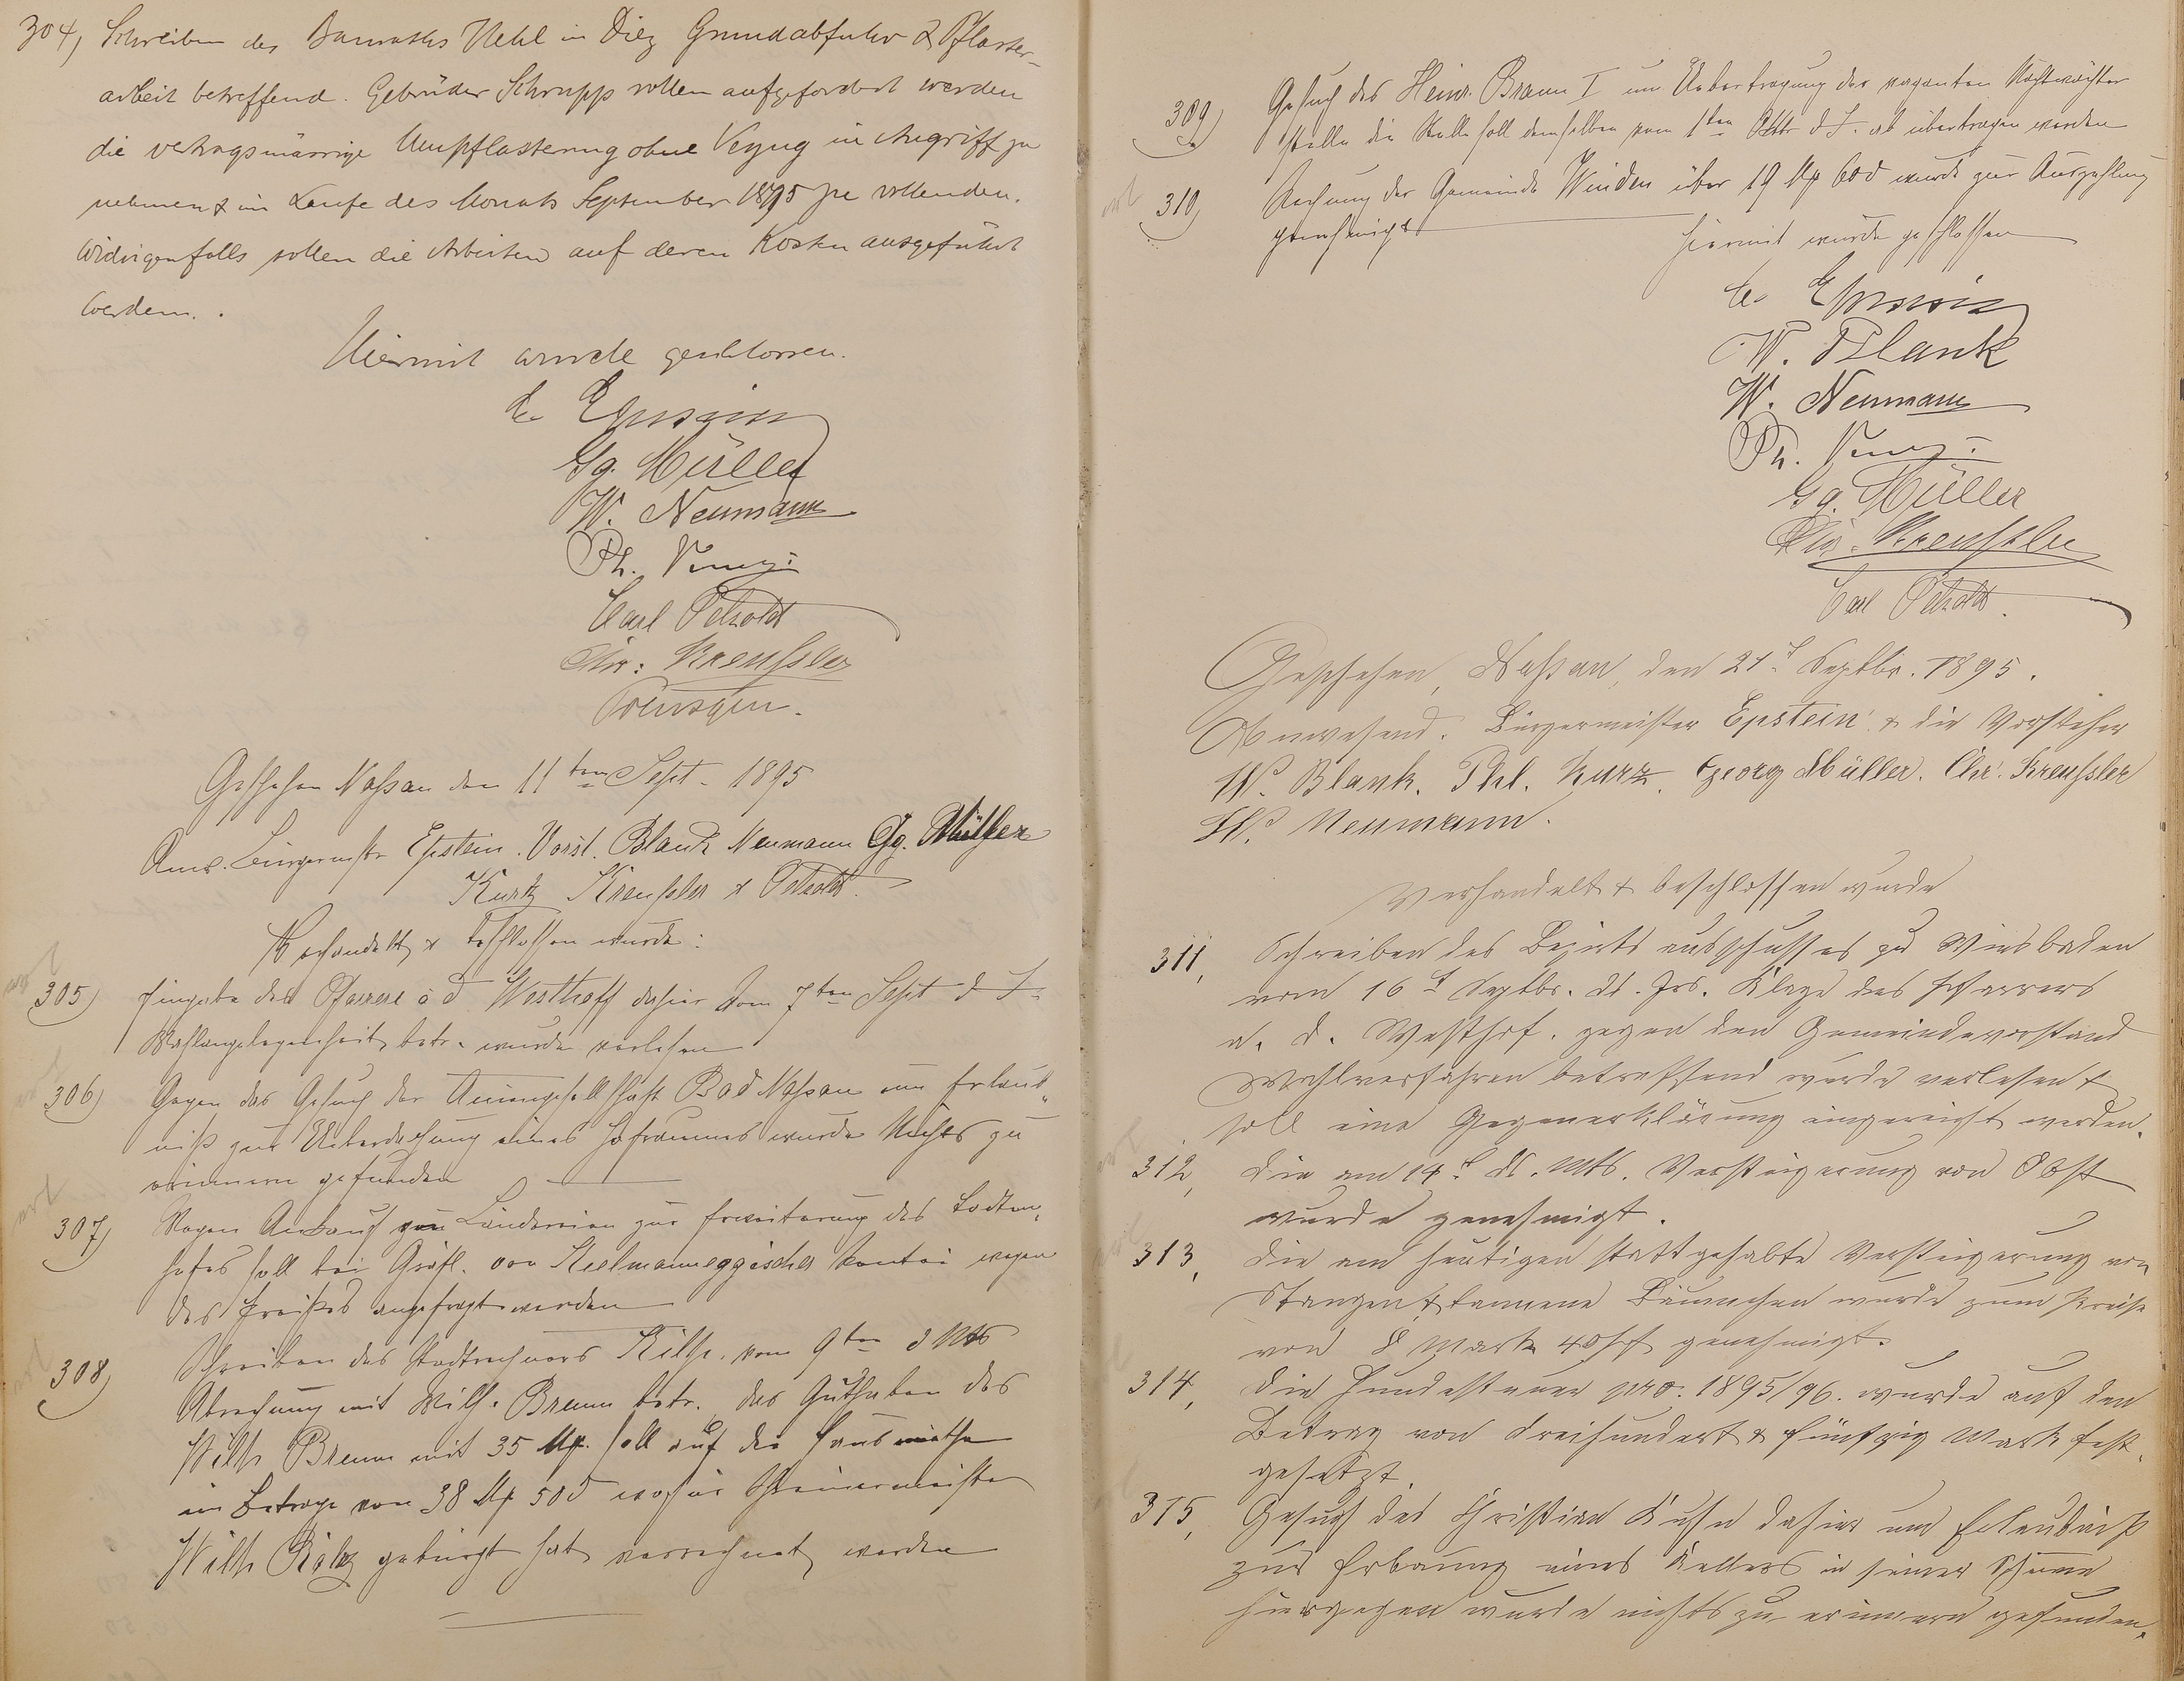 304, Schreiben des Bauraths Hehl in Diez Grundabfuhr & Pflaster-
arbeit betreffend. Gebrüder Schrupp sollen aufgefordert werden
die vertragsmässige Umpflasterung ohne Verzug in Angriff zu
nehmen & im Laufe des Monats September 1895 zu vollenden.
Widrigenfalls sollen die Arbeiten auf deren Kosten ausgeführt
werden.
Hiermit wurde geschlossen.
Epstein
Gg. Müller
W. Neumann
Ph.
Carl Petzold
Chr. Kreußler
Geschehen Naßau den 11ten Sept. 1895
Anw. Bürgermstr Epstein. Vorst. Blank Neumann Gg. Müller
Kurtz Kreußler & Petzold
Verhandelt & beschlossen wurde:
305) Eingabe des Pfarrers a D Westhoff dahier vom 7ten Sept d J.
Wahlangelegenheit betr. wurde verlesen
306) Gegen das Gesuch der Actiengesellschaft Bad Naßau um Erlaub-
niß zur Ueberdachung eines Hofraumes wurde Nichts zu
erinnern gefunden
307) Wegen Ankauf von Ländereien zur Erweiterung des Todten-
hofes soll bei Gräfl. von Kielmanneggischer Rentei wegen
des Preißes angefragt werden
308) Schreiben des Stadtrechners vom 9ten d Mts
Abrechnung mit Wilh. Braun betr. das Guthaben des
Wilh Braun mit 35 Mk. soll auf die Hausmiethe
im Betrage von 38 Mk 50 wofür Schreinermeister
Wilh gebürgt hat verrechnet werden
309) Gesuch des Heinr. Braun I um Uebertragung der vaganten Nachtwächter
stelle die Stelle soll demselben vom 1ten Oktbr d J. ab übertragen werden
310) Rechnung der Gemeinde Winden über 19 Mk 60 wurde zur Auszahlung
genehmigt
Hiermit wurde geschlossen
Epstein
W. Blank
W. Neumann
Ph.
Gg. Müller
Chr. Kreußler
Carl Petzold.
Geschehen, Naßau, den 21t Septbr. 1895.
Anwesend. Bürgermeister Epstein & die Vorsteher
W. Blank. Phl. Kurz. Georg Müller. Chr. Kreußler
W. Neumann.
Verhandelt & beschlossen wurde
311, Schreiben des Bezirks ausschusses zu Wiesbaden
vom 16t Septbr. ds. Jrs. Klage des Pfarrers
a. d. Westhof. gegen den Gemeindevorstand
Wahlverfahren betreffend wurde verlesen &
soll eine Gegenerklärung eingereicht werden.
312, Die am 14t ds. Mts. Versteigerung von Obst
wurde genehmigt.
313, Die am heutigen stattgehabte Versteigerung von
Stangen & tannene Bäumchen wurde zum Preise
von 8 Mark 40 Pf genehmigt.
314, Die Hundesteuer pro. 1895/96. wurde auf den
Betrag von dreihundert & fünfzig Mark fest-
gesetzt.
315, Gesuch des Christian Kuhn dahier um Erlaubniß
zur Erbauung eines Kellers in seiner Scheune
hiergegen wurde nichts zu erinnern gefunden.